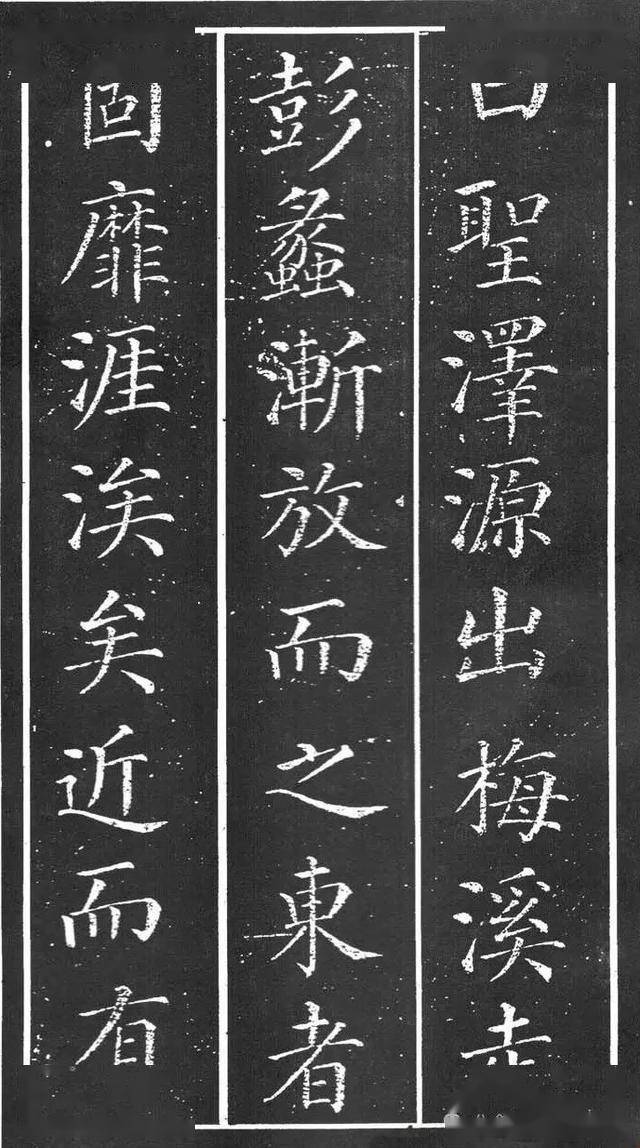 聖澤源出梅溪
彭蠡漸放而之東者
固靡涯涘矣近而